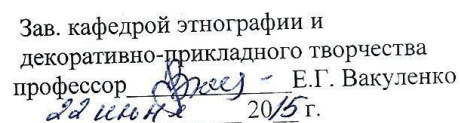 Зав. кафедрой этнографии и
декоративно-прикладного творчества
профессор Е.Г. Вакуленко
22 июня 2015 г.